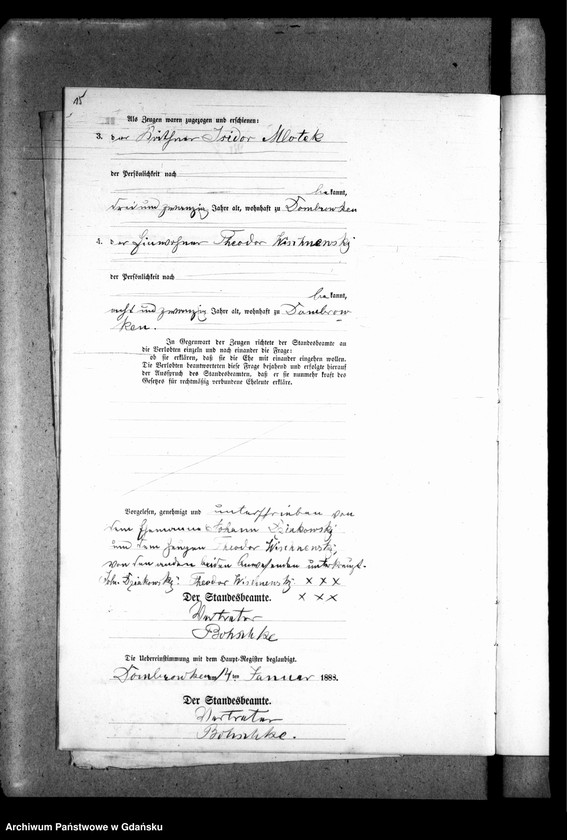 15
Als Zeugen waren zugezogen und erschienen:
3. der Käthner Isidor Mlotek
der Persönlichkeit nach
bekannt,
drei und zwanzig Jahre alt, wohnhaft zu Dombrowken
4. der Einwohner Theodor Wischnenski
der Persönlichkeit nach
bekannt,
acht und zwanzig Jahre alt, wohnhaft zu Dombrow-
ken.
In Gegenwart der Zeugen richtete der Standesbeamte an
die Verlobten einzeln und nach einander die Frage:
ob sie erklären, daß sie die Ehe mit einander eingehen wollen.
Die Verlobten beantworteten diese Frage bejahend und erfolgte hierauf
der Ausspruch des Standesbeamten, daß er sie nunmehr kraft des
Gesetzes für rechtmäßig verbundene Eheleute erkläre.
Vorgelesen, genehmigt und unterschrieben von
dem Ehemanne Johann Dziakowski
und dem Zeugen Theodor Wischnenski,
von den anderen beiden Anwesenden unterkreuzt.
Joh. Dziakowski. Theodor Wischnenski. × × ×
Der Standesbeamte. × × ×
Vertreter
Bohschke
Die Uebereinstimmung mit dem Haupt-Register beglaubigt.
Dombrowken 14ten Januar 1888.
Der Standesbeamte.
Vertreter
Bohschke.
Archiwum Państwowe w Gdańsku